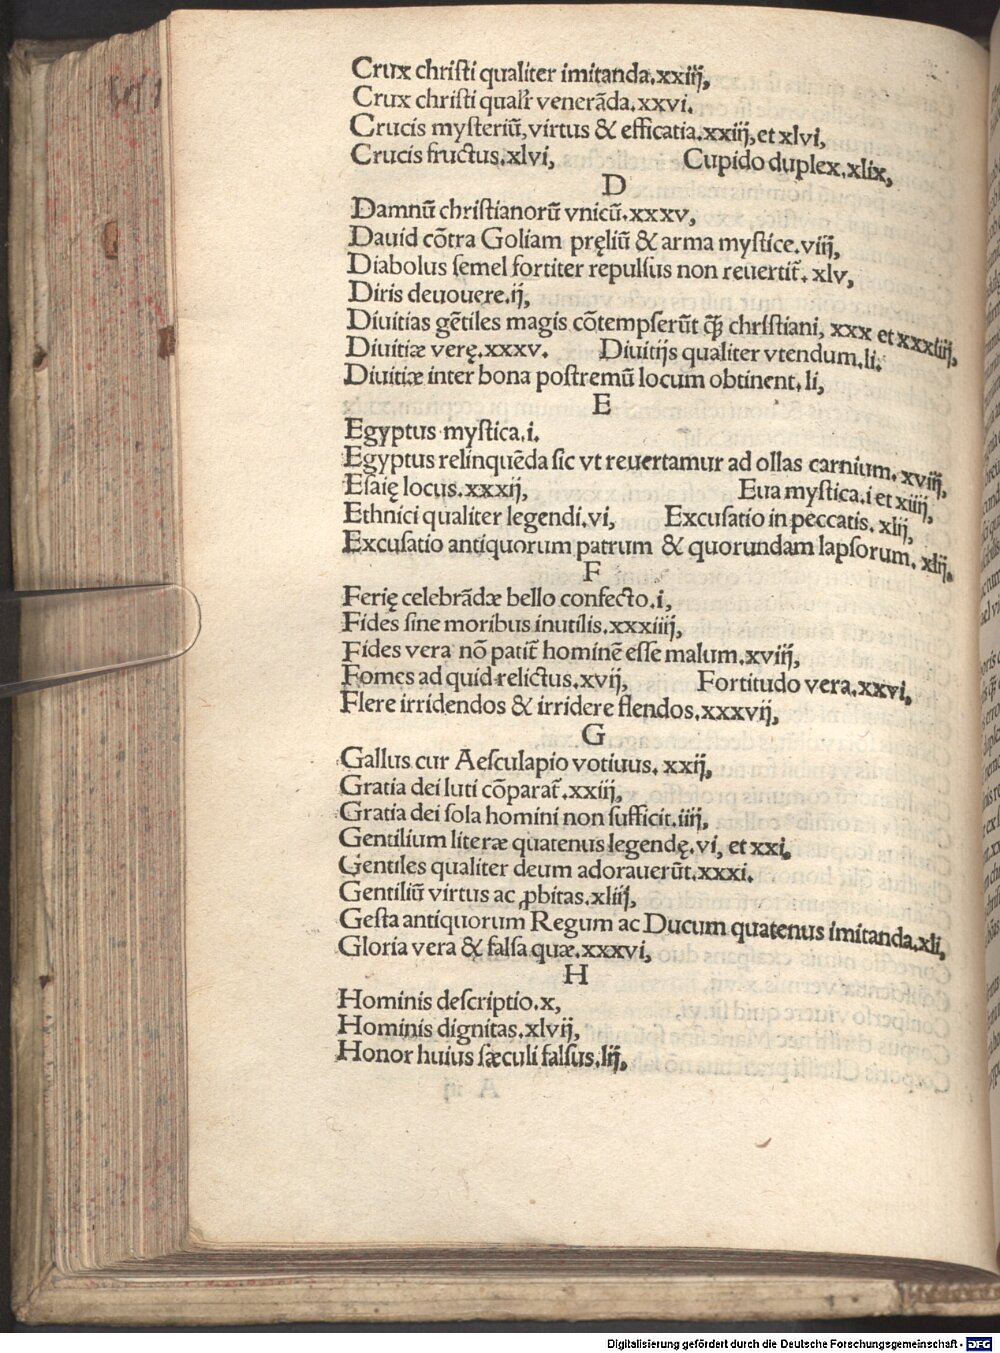 Crux christi qualiter imitanda.xxiiȷ,
Crux christi qualr̃ venerãda.xxvi.
Crucis myſteriũ,virtus & efficatia.xxiiȷ,et xlvi,
Crucis fructus.xlvi, Cupido duplex.xlix,
D
Damnũ chriſtianorũ vnicũ.xxxv,
Dauid cõtra Goliam pręliũ & arma myſtice.viiȷ,
Diabolus ſemel fortiter repulſus non reuertit̃. xlv,
Diris deuouere.iȷ,
Diuitias gẽtiles magis cõtempſerũt ꝙ̃ chrſſtiani, xxx et xxxiiiȷ,
Diuitiæ verę.xxxv. Diuitiȷs qualiter vtendum.li.
Diuitiæ inter bona poſtremũ locum obtinent.li,
E
Egyptus myſtica.i.
Egyptus relinquẽda ſic vt reuertamur ad ollas carnium.xviiȷ,
Eſaię locus.xxxiȷ, Eua myſtica.i et xiiiȷ,
Ethnici qualiter legendi.vi, Excuſatio in peccatis. xliȷ,
Excuſatio antiquorum patrum & quorundam lapſorum. xliȷ,
F
Ferię celebrãdæ bello confecto.i,
Fides ſine moribus inutilis.xxxiiiȷ,
Fides vera nõ patit̃ hominẽ eſſe malum.xviiȷ,
Fomes ad quid relictus.xviȷ, Fortitudo vera.xxvi,
Flere irridendos & irridere flendos.xxxviȷ,
G
Gallus cur Aeſculapio votiuus. xxiȷ,
Gratia dei luti cõparat̃.xxiiȷ,
Gratia dei ſola homini non ſufficit.iiiȷ,
Gentilium literæ quatenus legendę.vi, et xxi,
Gentiles qualiter deum adorauerũt.xxxi.
Gentiliũ virtus ac ꝓbitas.xliiȷ,
Geſta antiquorum Regum ac Ducum quatenus imitanda.xli,
Gloria vera & falſa quæ.xxxvi,
H
Hominis deſcriptio.x,
Hominis dignitas.xlviȷ,
Honor huius ſæculi falſus.liȷ,
Digitalisierung gefördert durch die Deutsche Forschungsgemeinschaft - DFG